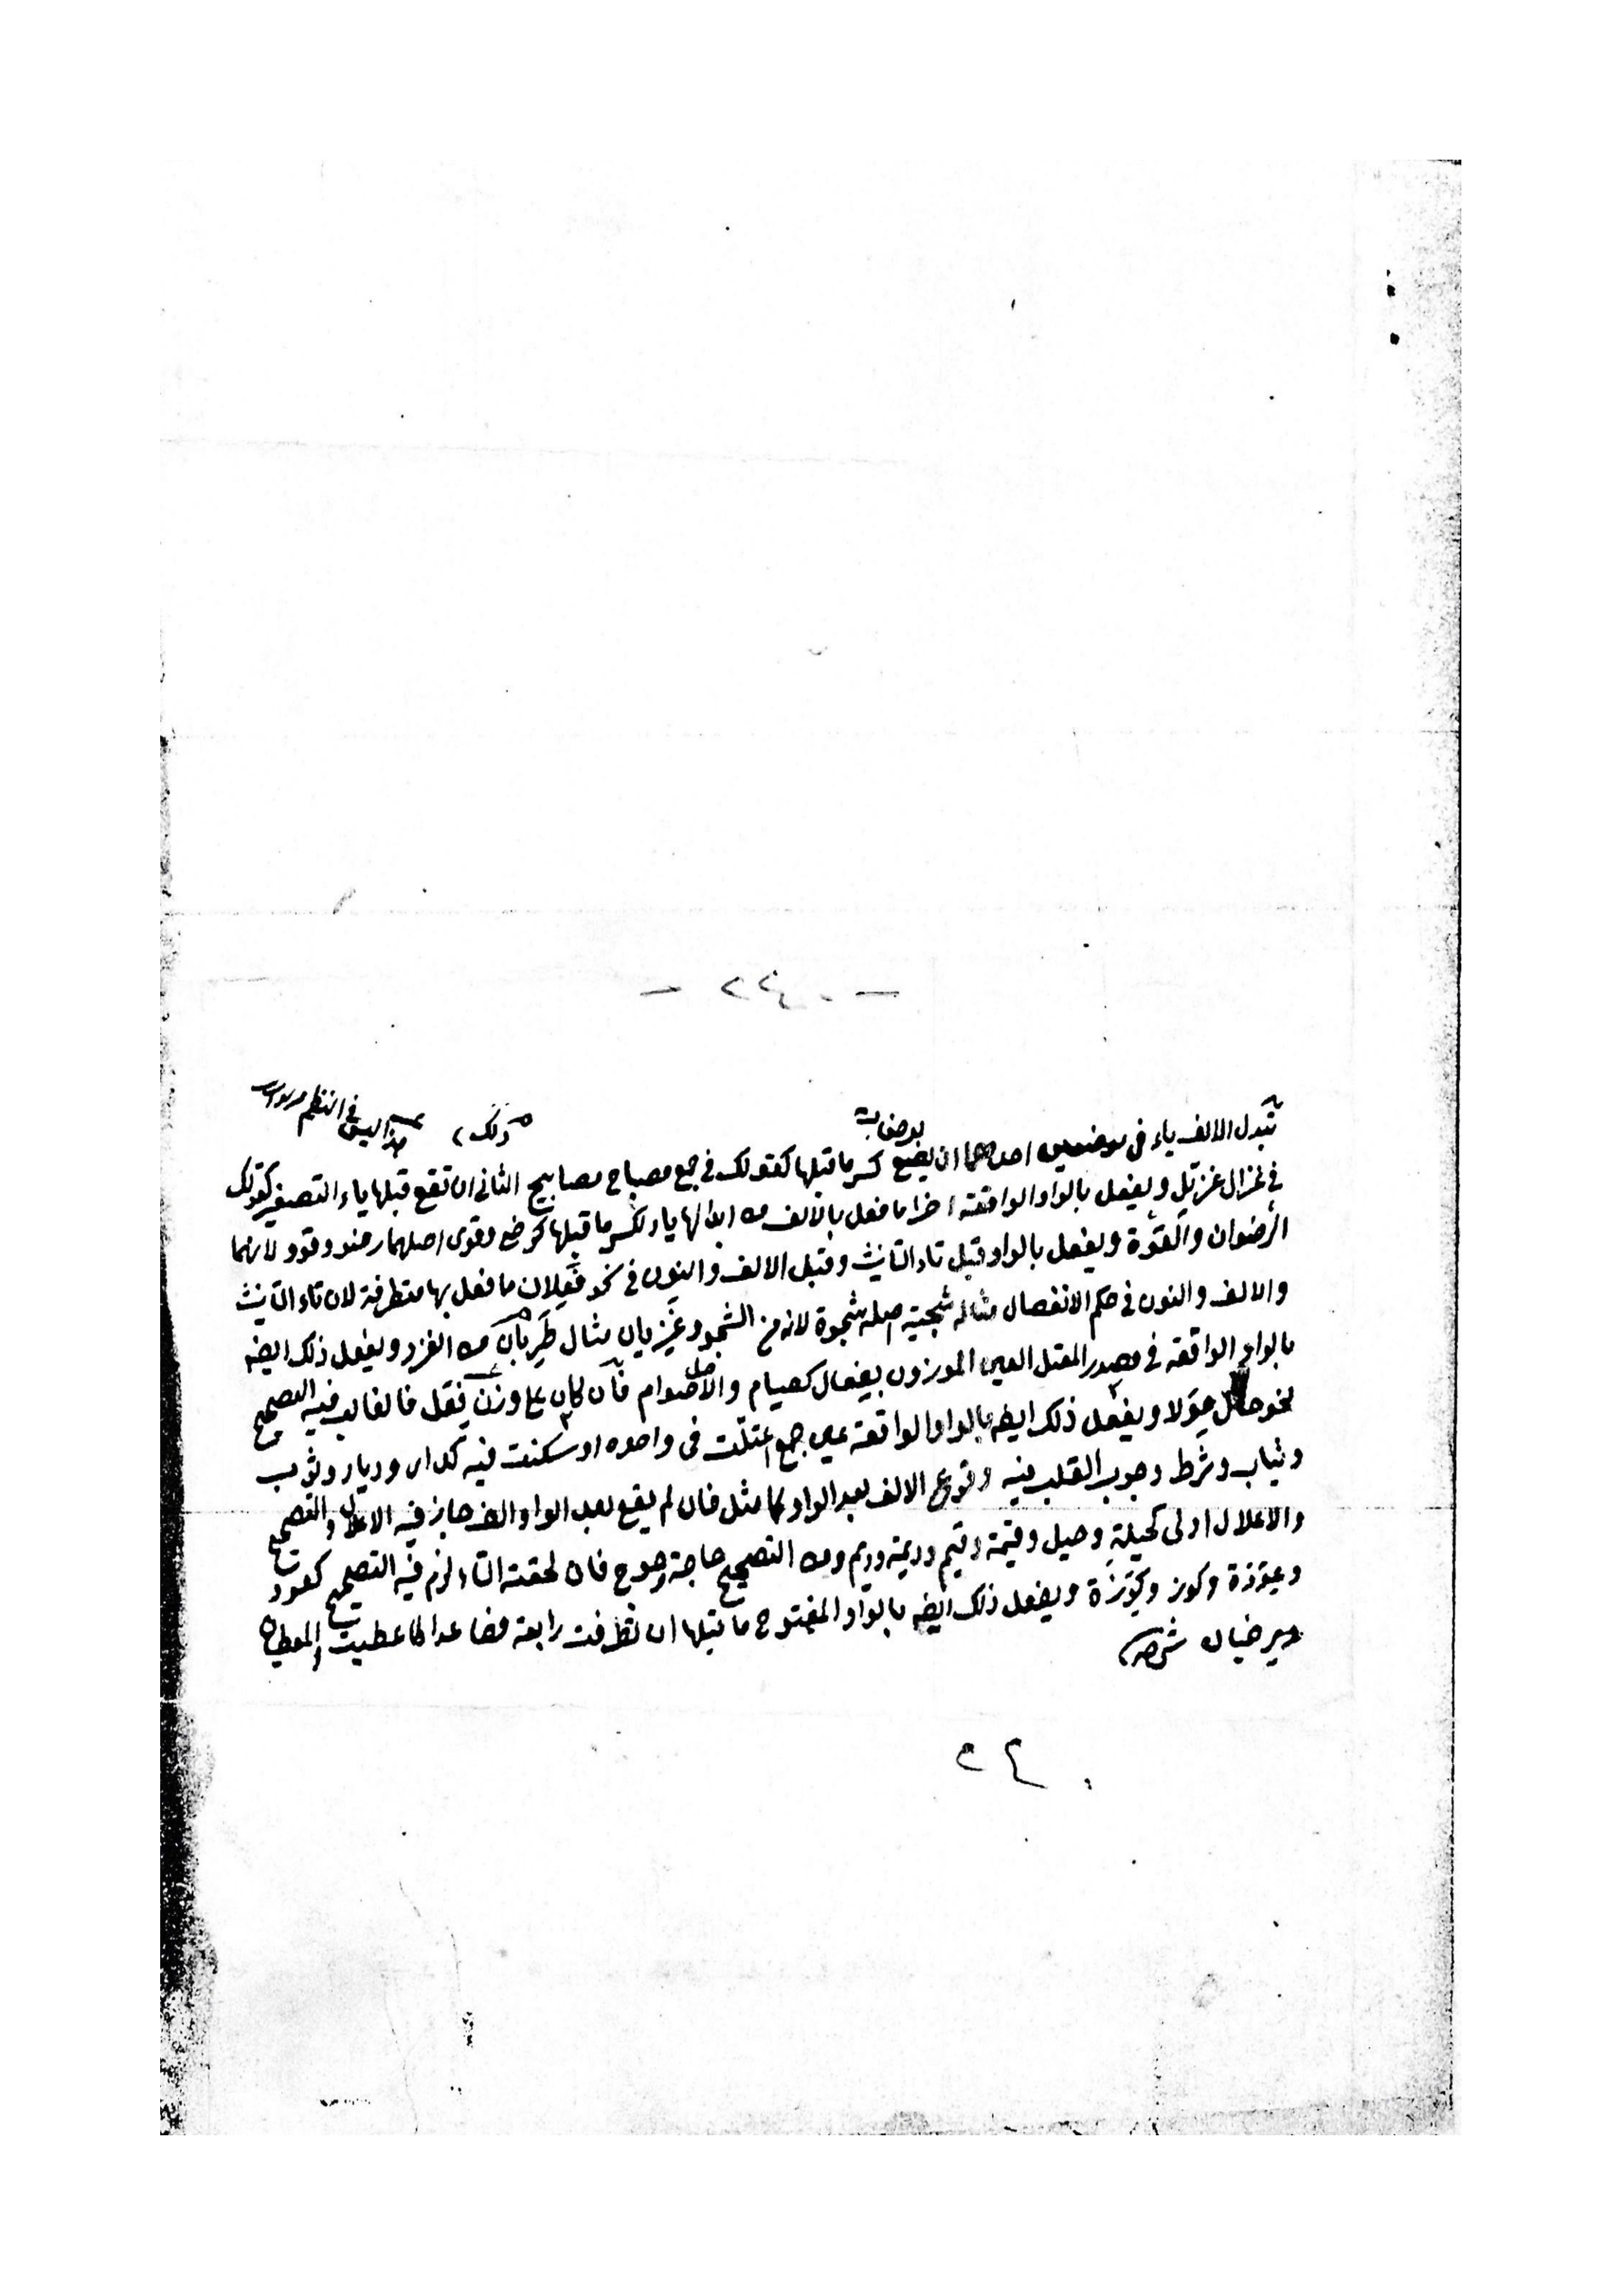 - ٢٤٠ -
ذلك هذا ليس في النظم
تبدل الالف ياء في موضعين احدهما ان يقع كسر ما قبلها كقولك في جمع مصباح مصابيح الثاني ان تقع قبلها ياء التصغير كقولك
في غزال غزيّل ويفعل بالواو الواقعة اخرا ما فعل بالالف من ابدالها ياء لكسر ما قبلها كرضي وقوي اصلهما رضو وقوو لانهما
الرضوان والقوة ويفعل بالواو قبل تاء التأنيث وقبل الالف والنون في نحو فعلان ما فعل بها متطرفة لان تاء التأنيث
والالف والنون في حكم الانفصال مثاله شجية اصله شجوة لانه من الشجو وغزيان مثال ظربان من الغزو ويفعل ذلك ايضه
بالواو الواقعة في مصدر المعتل العين الموزون بفعال كصيام والاصل صوام فان كان على وزن فعل فالغالب فيه التصحيح
نحو حال حولا ويفعل ذلك ايضه بالواو الواقعة عين جمع اعتلّت في واحده او سكنت فيه كدار وديار وثوب
وثياب وشرط وجوب القلب فيه وقوع الالف بعد الواو كما مثل فان لم يقع بعد الواو الف جاز فيه الاعلال والتصحيح
والاعلال اولى كحيلة وحيل وقيمة وقيم وديمة وديم ومن التصحيح حاجة وحوج فان لحقته التاء لزم فيه التصحيح كعود
وعِوَدَة وكوز وكِوَزَة ويفعل ذلك ايضه بالواو المفتوح ما قبلها ان تطرفت رابعة فصاعدا كاعطيت والمعطيان
ويرضيان
٢٤٠